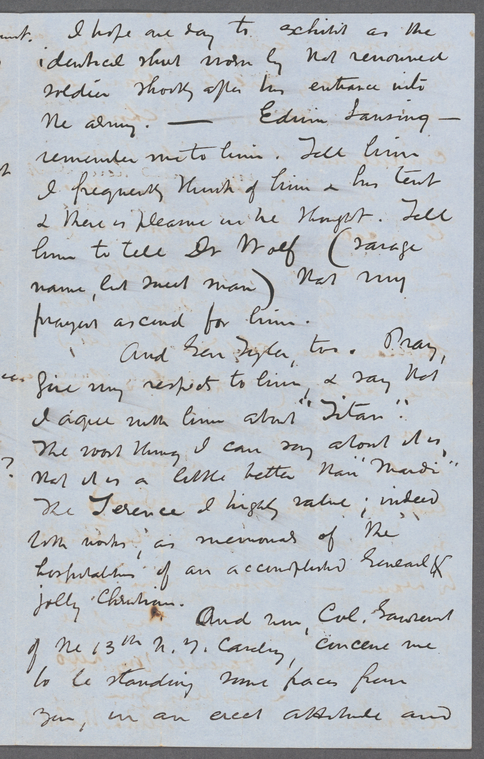 I hope one day to exhibit as the
identical shirt worn by that renowned
soldier shortly after his entrance into
the army. — Edwin Lansing —
remember me to him. Tell him
I frequently think of him & his tent
& there is pleasure in the thought. Tell
him to tell Dr Wolf (savage
name, but sweet man) that my
prayers ascend for him.
And Gen Tyler, too. Pray,
give my respects to him, & say that
I agree with him about "Titan".
The worst thing I can say about it is,
that it is a little better than "Mardi"
The Terence I highly value; indeed
both works, as memorials of the
hospitalities of an accomplished General &
jolly Christian.
And now, Col. Gansevoort
of the 13th N. Y. Cavalry, conceive me
to be standing some paces from
you, in an erect attitude and